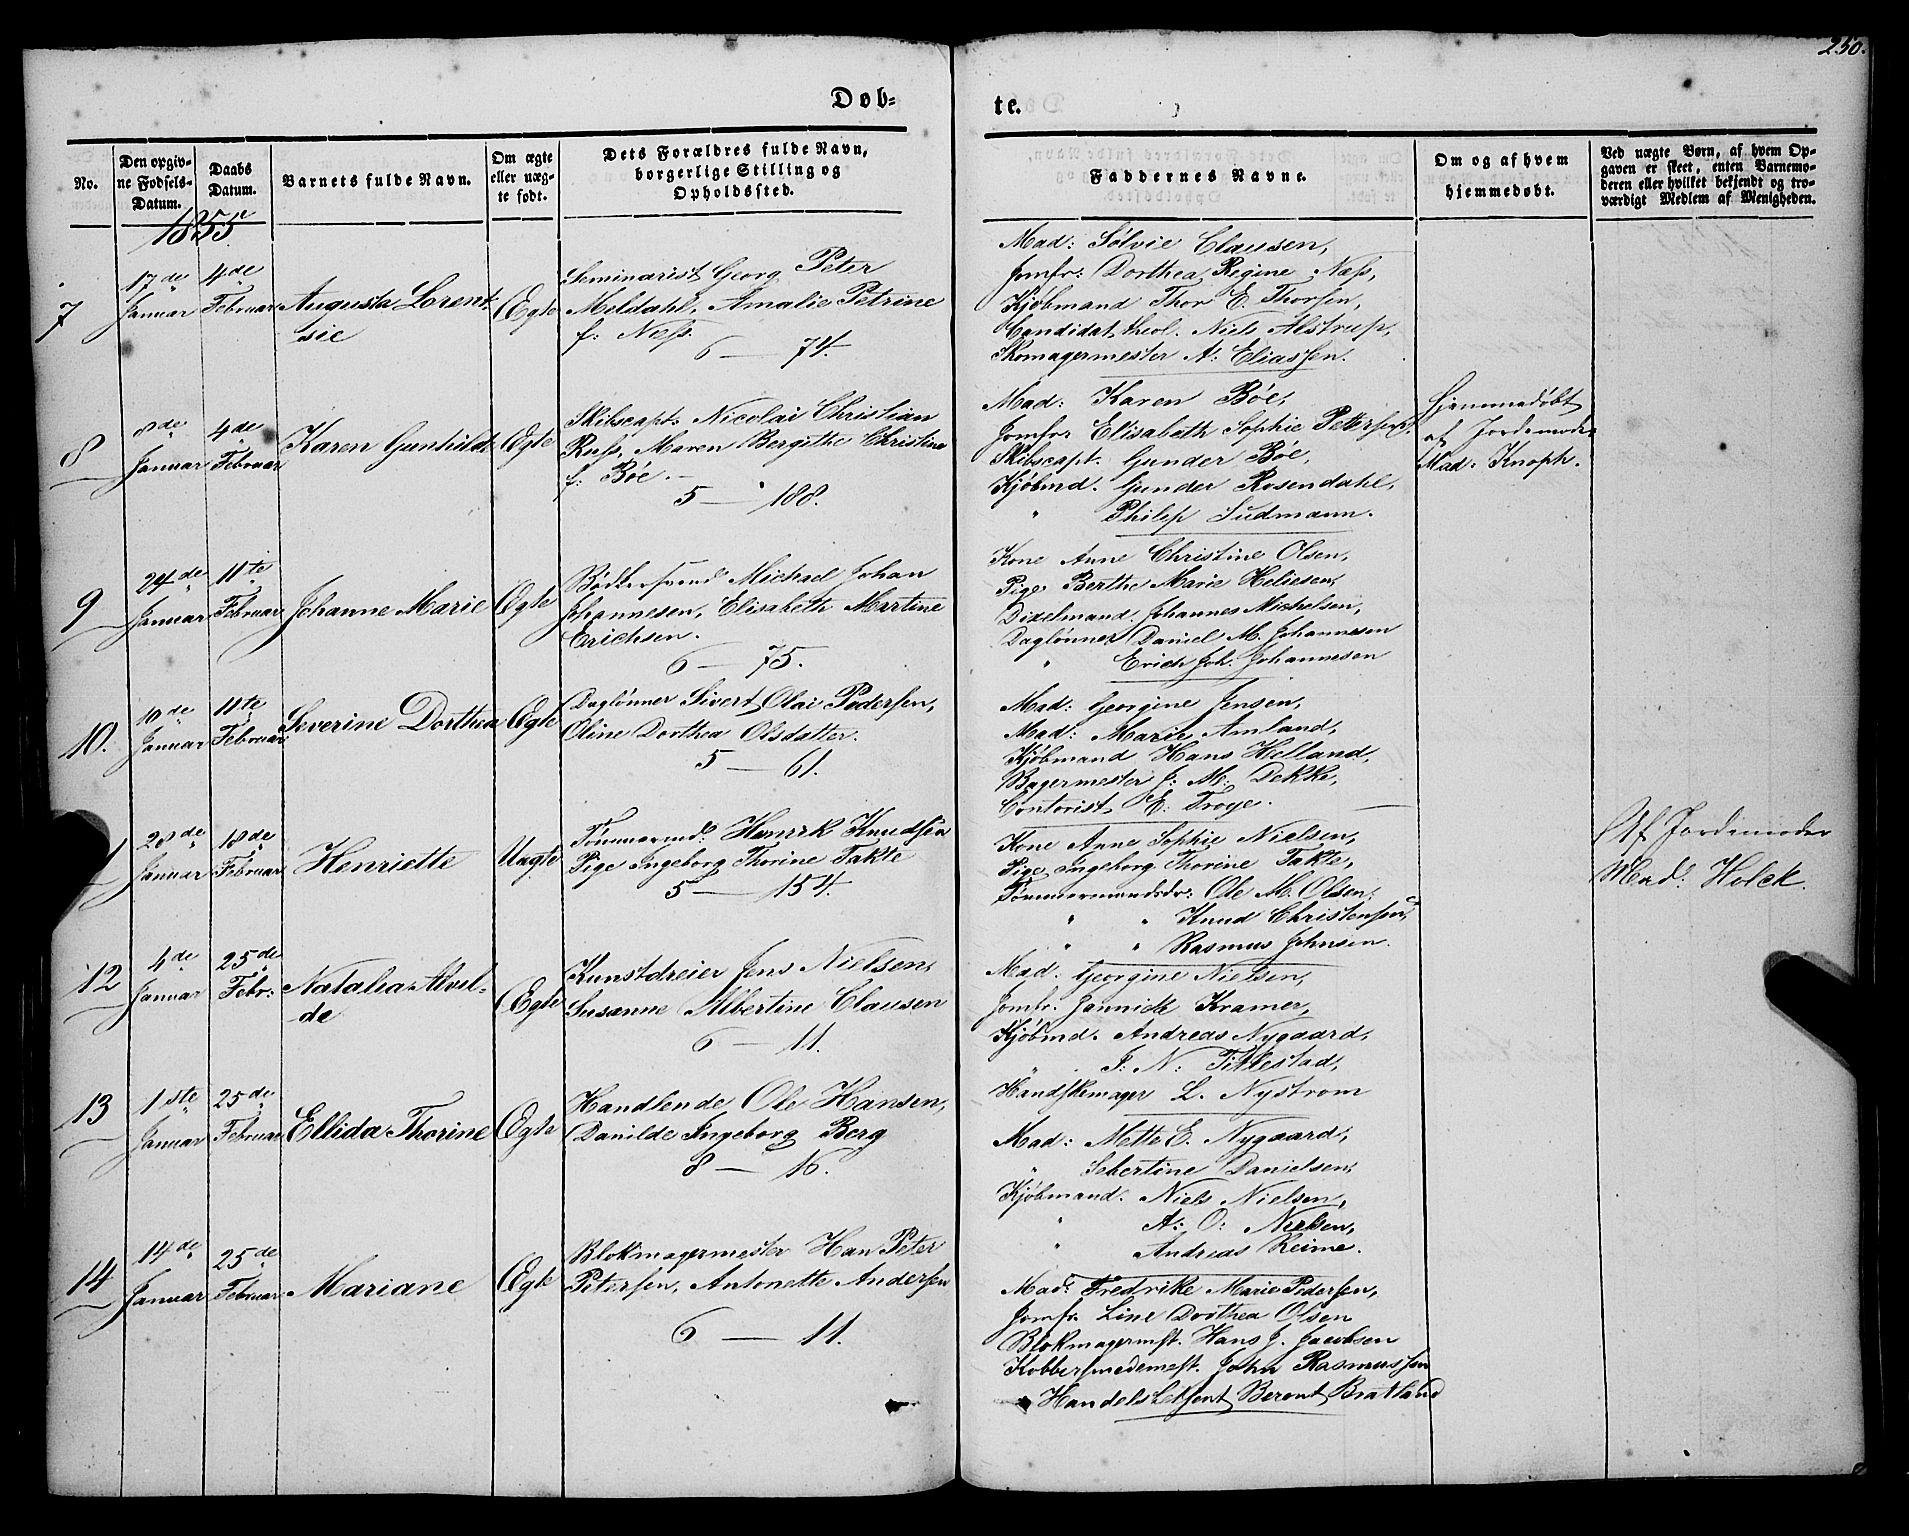 250.
Døb-
te.
No.
Den opgiv-
ne Fødsels-
Datum.
Daabs
Datum.
Barnets fulde Navn.
Om ægte
eller uæg-
te født.
Dets Forældres fulde Navn,
borgerlige Stilling og
Opholdssted.
Faddernes Navne.
Om og af hvem
hjemmedøbt.
Ved uægte Børn, af hvem Op-
gaven er skeet, enten Barnemo-
deren eller hvilket bekjendt og tro-
værdigt Medlem af Menigheden.
1855.
7
17de
Januar
4de
Februar
Augusta Lorent-
sie
Ægte
Seminarist Georg Peter
Meldahl, Amalie Petrine
f: Næss.
6 — 74.
Mad: Sølvie Clausen,
Jomfr: Dorthea Regine Næss,
Kjøbmand Thor E. Thorsen,
Candidat, theol. Niels Alstrup,
Skomagermester A: Eliassen.
8
8de
Januar
4de
Februar
Karen Gunhilde
Ægte
Skibscapt: Nicolai Christian
Russ, Maren Bergithe Christine
f: Böe.
5 — 188.
Mad: Karen Böe,
Jomfr: Elisabeth Sophie Petersen,
Skibscapt. Gunder Böe,
Kjøbmd. Gunder Rosendahl,
" Philip Sudmann.
Hjemmedøbt
af Jordemoder
Mad: Knoph.
9
24de
Januar
11te
Februar
Johanne Marie
Ægte
Bødkersvend Michael Johan
Johannesen, Elisabeth Martine
Erichsen.
6 — 75.
Kone Anne Christine Olsen,
Pige Berthe Marie Heliesen,
Dixelmand Johannes Michelsen,
Daglønner Daniel M. Johannesen
" Erich Joh. Johannesen
10.
10de
Januar
11te
Februar
Severine Dorthea
Ægte
Daglønner Sivert Olai Pedersen,
Oline Dorthea Olsdatter.
5 — 61.
Mad: Georgine Jensen,
Mad: Marie Amland,
Kjøbmand Hans Helland,
Bagermester J: M: Dekke,
Contorist, E: Troye.
1
28de
Januar
18de
Februar
Henriette
Uægte
Tømmermd: Henrik Knudsen
Pige Ingeborg Thorine Takte
5 — 154.
Kone Anne Sophie Nielsen,
Pige Ingeborg Thorine Takte,
Tømmermandsdr: Ole M. Olsen,
" " Knud Christensen,
" " Rasmus Johnsen.
Af Jordemoder
Mad: Holck.
12
4de
Januar
25de
Febr:
Natalia Alvil-
de
Ægte
Kunstdreier Jens Nielsen,
Susanne Albertine Clausen
6 — 11.
Mad. Georgine Nielsen,
Jomfr. Jannicke Kramer,
Kjøbmd. Andreas Nygaard,
" T: N: Tittestad,
Handskemager L. Nystrom
13
1ste
Januar
25de
Februar
Ellida Thorine
Ægte
Handlende Ole Hansen,
Danilde Ingeborg Berg
8 — 16.
Mad: Mette E. Nygaard,
" Sebertine Danielsen,
Kjøbmand. Niels Nielsen,
" A: O: Nielsen,
" Andreas Reime.
14
14de
Januar
25de
Februar
Mariane
Ægte
Blokmagermester Han Peter
Petersen, Antonette Andersen
6 — 11.
Mad: Fredrike Marie Pedersen,
Jomfr. Line Dorthea Olsen
Blokmagermst. Hans J. Jacobsen
Kobbersmedemest. John Rasmussen
Handelsbetjent Berent Bratland